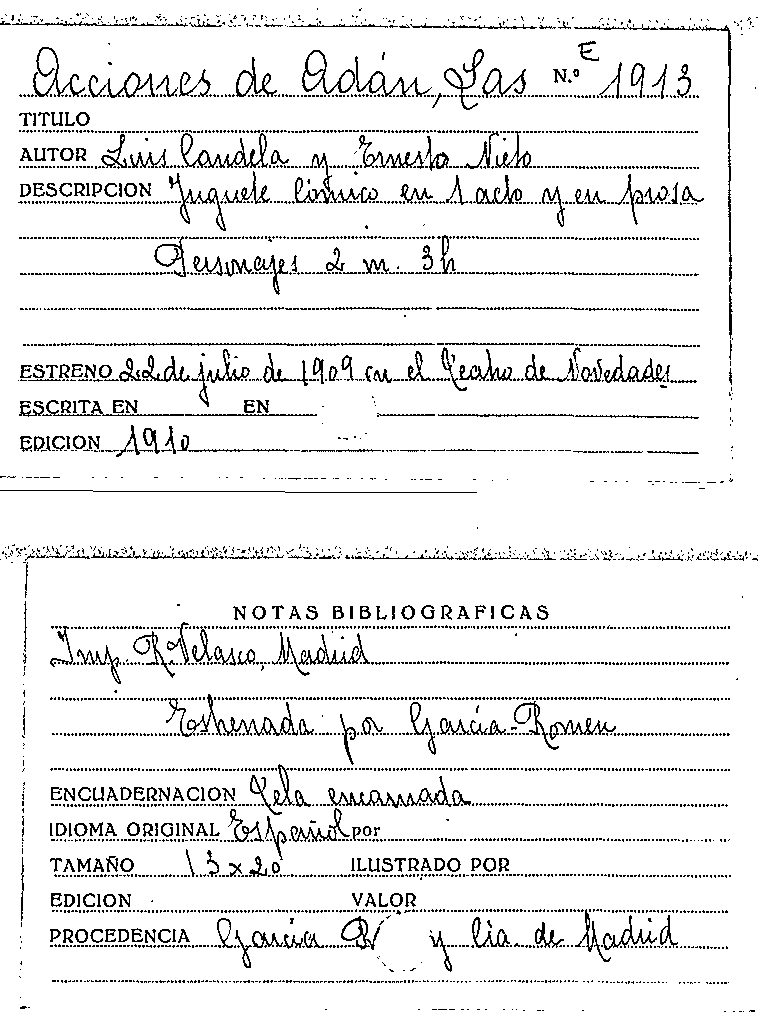 Acciones de Adán, Las N.º E 1913
TITULO
AUTOR Luis Candela y Ernesto Nieto
DESCRIPCION Juguete Cómico en 1 acto y en prosa
Personajes 2 m. 3h
ESTRENO 22 de julio de 1909 en el Teatro de Novedades
ESCRITA EN EN
EDICION 1910
NOTAS BIBLIOGRAFICAS
Imp. R. Velasco, Madrid
Estrenada por García-Romeu
ENCUADERNACION Tela encarnada
IDIOMA ORIGINAL Español por
TAMAÑO 13x20 ILUSTRADO POR
EDICION VALOR
PROCEDENCIA García y Cia. de Madrid